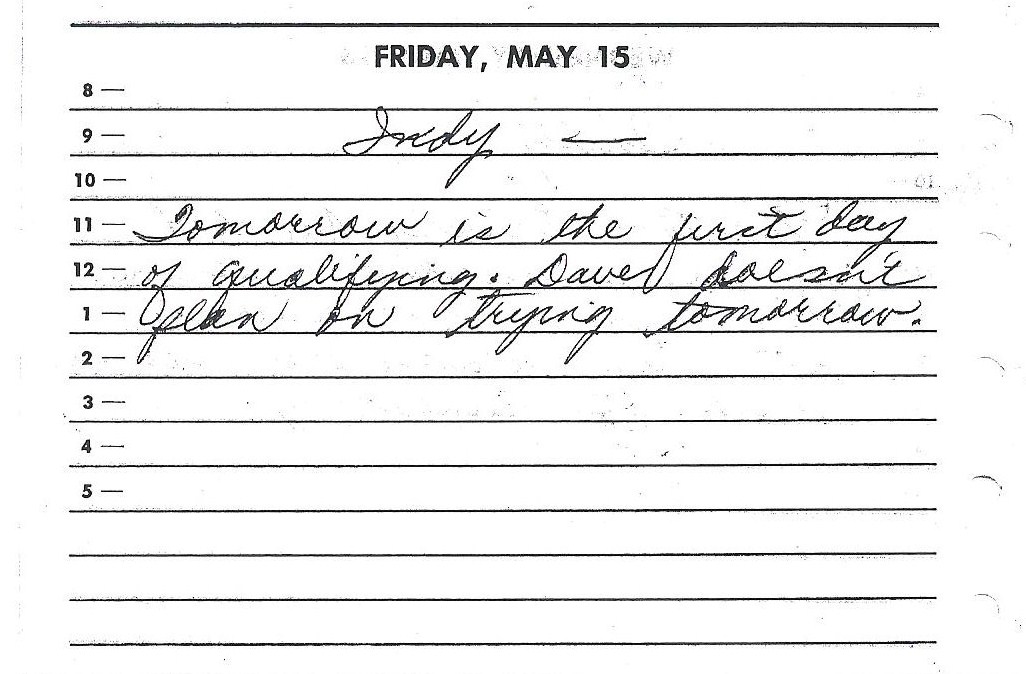 FRIDAY, MAY 15
8 —
9 — Indy —
10 —
11 — Tomorrow is the first day
12 — of qualifying. Dave doesn't
1 — plan on trying tomorrow.
2 —
3 —
4 —
5 —